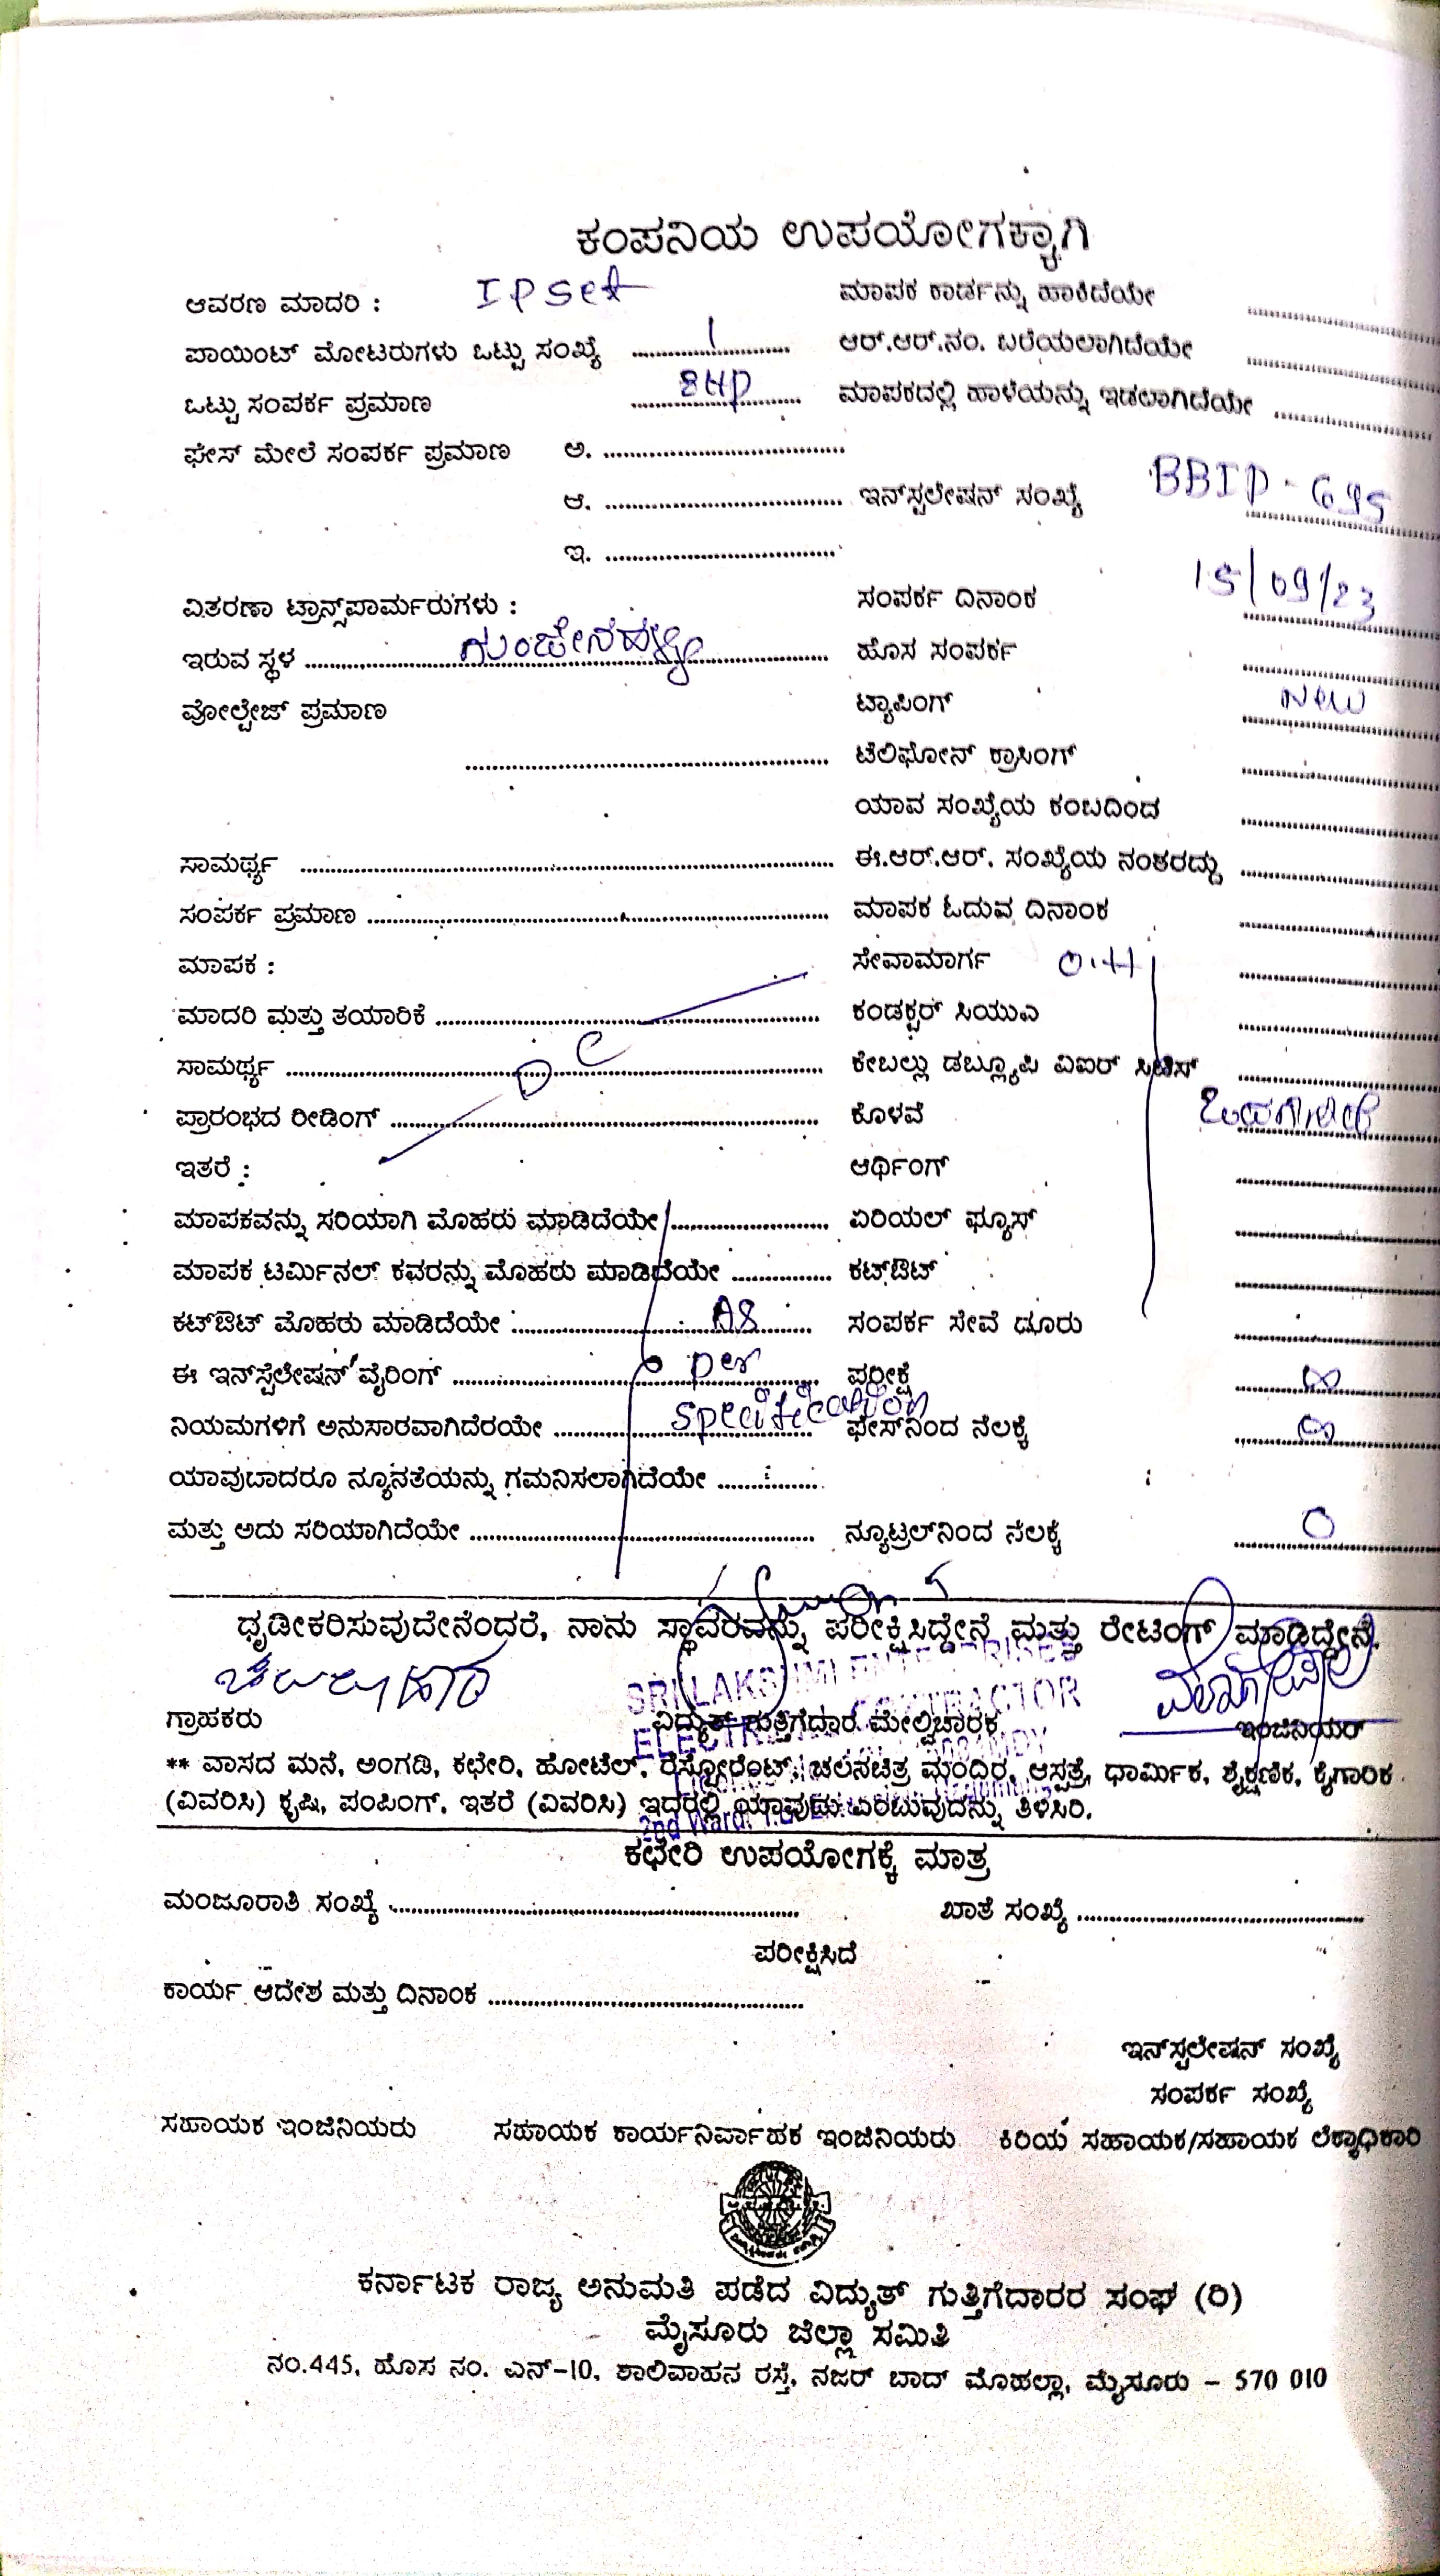 ಕಂಪನಿಯ ಉಪಯೋಗಕ್ಕಾಗಿ
ಆವರಣ ಮಾದರಿ : IP Set ಮಾಪಕ ಕಾರ್ಡನ್ನು ಹಾಕಿದೆಯೇ
ಪಾಯಿಂಟ್ ಮೋಟರುಗಳು ಒಟ್ಟು ಸಂಖ್ಯೆ 1 ಆರ್.ಆರ್.ನಂ. ಬರೆಯಲಾಗಿದೆಯೇ
ಒಟ್ಟು ಸಂಪರ್ಕ ಪ್ರಮಾಣ 8HP ಮಾಪಕದಲ್ಲಿ ಹಾಳೆಯನ್ನು ಇಡಲಾಗಿದೆಯೇ
ಫೇಸ್ ಮೇಲೆ ಸಂಪರ್ಕ ಪ್ರಮಾಣ ಅ.
ಆ. ಇನ್‌ಸ್ಟಲೇಷನ್ ಸಂಖ್ಯೆ BBIP - 695
ಇ.
ವಿತರಣಾ ಟ್ರಾನ್ಸ್‌ಪಾರ್ಮರುಗಳು : ಸಂಪರ್ಕ ದಿನಾಂಕ 15/09/23
ಇರುವ ಸ್ಥಳ ಹೊಸ ಸಂಪರ್ಕ
ವೋಲ್ಟೇಜ್ ಪ್ರಮಾಣ ಟ್ಯಾಪಿಂಗ್ New
ಟೆಲಿಫೋನ್ ಕ್ರಾಸಿಂಗ್
ಯಾವ ಸಂಖ್ಯೆಯ ಕಂಬದಿಂದ
ಸಾಮರ್ಥ್ಯ ಈ.ಆರ್.ಆರ್. ಸಂಖ್ಯೆಯ ನಂತರದ್ದು
ಸಂಪರ್ಕ ಪ್ರಮಾಣ ಮಾಪಕ ಓದುವ ದಿನಾಂಕ
ಮಾಪಕ : ಸೇವಾಮಾರ್ಗ O.H
ಮಾದರಿ ಮತ್ತು ತಯಾರಿಕೆ ಕಂಡಕ್ಟರ್ ಸಿಯುಎ
ಸಾಮರ್ಥ್ಯ DC ಕೇಬಲ್ಲು ಡಬ್ಲ್ಯೂಪಿ ವಿಐರ್ ಸಿಟಿಎಸ್
ಪ್ರಾರಂಭದ ರೀಡಿಂಗ್ ಕೊಳವೆ
ಇತರೆ : ಆರ್ಥಿಂಗ್
ಮಾಪಕವನ್ನು ಸರಿಯಾಗಿ ಮೊಹರು ಮಾಡಿದೆಯೇ ಏರಿಯಲ್ ಫ್ಯೂಸ್
ಮಾಪಕ ಟರ್ಮಿನಲ್ ಕವರನ್ನು ಮೊಹರು ಮಾಡಿದೆಯೇ ಕಟ್‌ಔಟ್
ಕಟ್‌ಔಟ್ ಮೊಹರು ಮಾಡಿದೆಯೇ As ಸಂಪರ್ಕ ಸೇವೆ ದೂರು
ಈ ಇನ್‌ಸ್ಟೆಲೇಷನ್ ವೈರಿಂಗ್ per ಪರೀಕ್ಷೆ ∞
ನಿಯಮಗಳಿಗೆ ಅನುಸಾರವಾಗಿದೆರಯೇ specification ಫೇಸ್‌ನಿಂದ ನೆಲಕ್ಕೆ ∞
ಯಾವುದಾದರೂ ನ್ಯೂನತೆಯನ್ನು ಗಮನಿಸಲಾಗಿದೆಯೇ
ಮತ್ತು ಅದು ಸರಿಯಾಗಿದೆಯೇ ನ್ಯೂಟ್ರಲ್‌ನಿಂದ ನೆಲಕ್ಕೆ 0
ಧೃಡೀಕರಿಸುವುದೇನೆಂದರೆ, ನಾನು ಸ್ಥಾವರವನ್ನು ಪರೀಕ್ಷಿಸಿದ್ದೇನೆ ಮತ್ತು ರೇಟಿಂಗ್ ಮಾಡಿದ್ದೇನೆ.
SRI LAKSHMI ENTERPRISES
ಗ್ರಾಹಕರು ವಿದ್ಯುತ್ ಗುತ್ತಿಗೆದಾರ ಮೇಲ್ವಿಚಾರಕ ಇಂಜಿನಿಯರ್
** ವಾಸದ ಮನೆ, ಅಂಗಡಿ, ಕಛೇರಿ, ಹೋಟೆಲ್, ರೆಸ್ಟೋರೆಂಟ್, ಚಲನಚಿತ್ರ ಮಂದಿರ, ಆಸ್ಪತ್ರೆ, ಧಾರ್ಮಿಕ, ಶೈಕ್ಷಣಿಕ, ಕೈಗಾರಿಕ
(ವಿವರಿಸಿ) ಕೃಷಿ, ಪಂಪಿಂಗ್, ಇತರೆ (ವಿವರಿಸಿ) ಇದರಲ್ಲಿ ಯಾವುದು ಎಂಬುವುದನ್ನು ತಿಳಿಸಿರಿ.
2nd Ward,
ಕಛೇರಿ ಉಪಯೋಗಕ್ಕೆ ಮಾತ್ರ
ಮಂಜೂರಾತಿ ಸಂಖ್ಯೆ ಖಾತೆ ಸಂಖ್ಯೆ
ಪರೀಕ್ಷಿಸಿದೆ
ಕಾರ್ಯ ಆದೇಶ ಮತ್ತು ದಿನಾಂಕ
ಇನ್‌ಸ್ಟಲೇಷನ್ ಸಂಖ್ಯೆ
ಸಂಪರ್ಕ ಸಂಖ್ಯೆ
ಸಹಾಯಕ ಇಂಜಿನಿಯರು ಸಹಾಯಕ ಕಾರ್ಯನಿರ್ವಾಹಕ ಇಂಜಿನಿಯರು ಕಿರಿಯ ಸಹಾಯಕ/ಸಹಾಯಕ ಲೆಕ್ಕಾಧಿಕಾರಿ
ಕರ್ನಾಟಕ ರಾಜ್ಯ ಅನುಮತಿ ಪಡೆದ ವಿದ್ಯುತ್ ಗುತ್ತಿಗೆದಾರರ ಸಂಘ (ರಿ)
ಮೈಸೂರು ಜಿಲ್ಲಾ ಸಮಿತಿ
ನಂ.445, ಹೊಸ ನಂ. ಎನ್-10, ಶಾಲಿವಾಹನ ರಸ್ತೆ, ನಜರ್ ಬಾದ್ ಮೊಹಲ್ಲಾ, ಮೈಸೂರು – 570 010